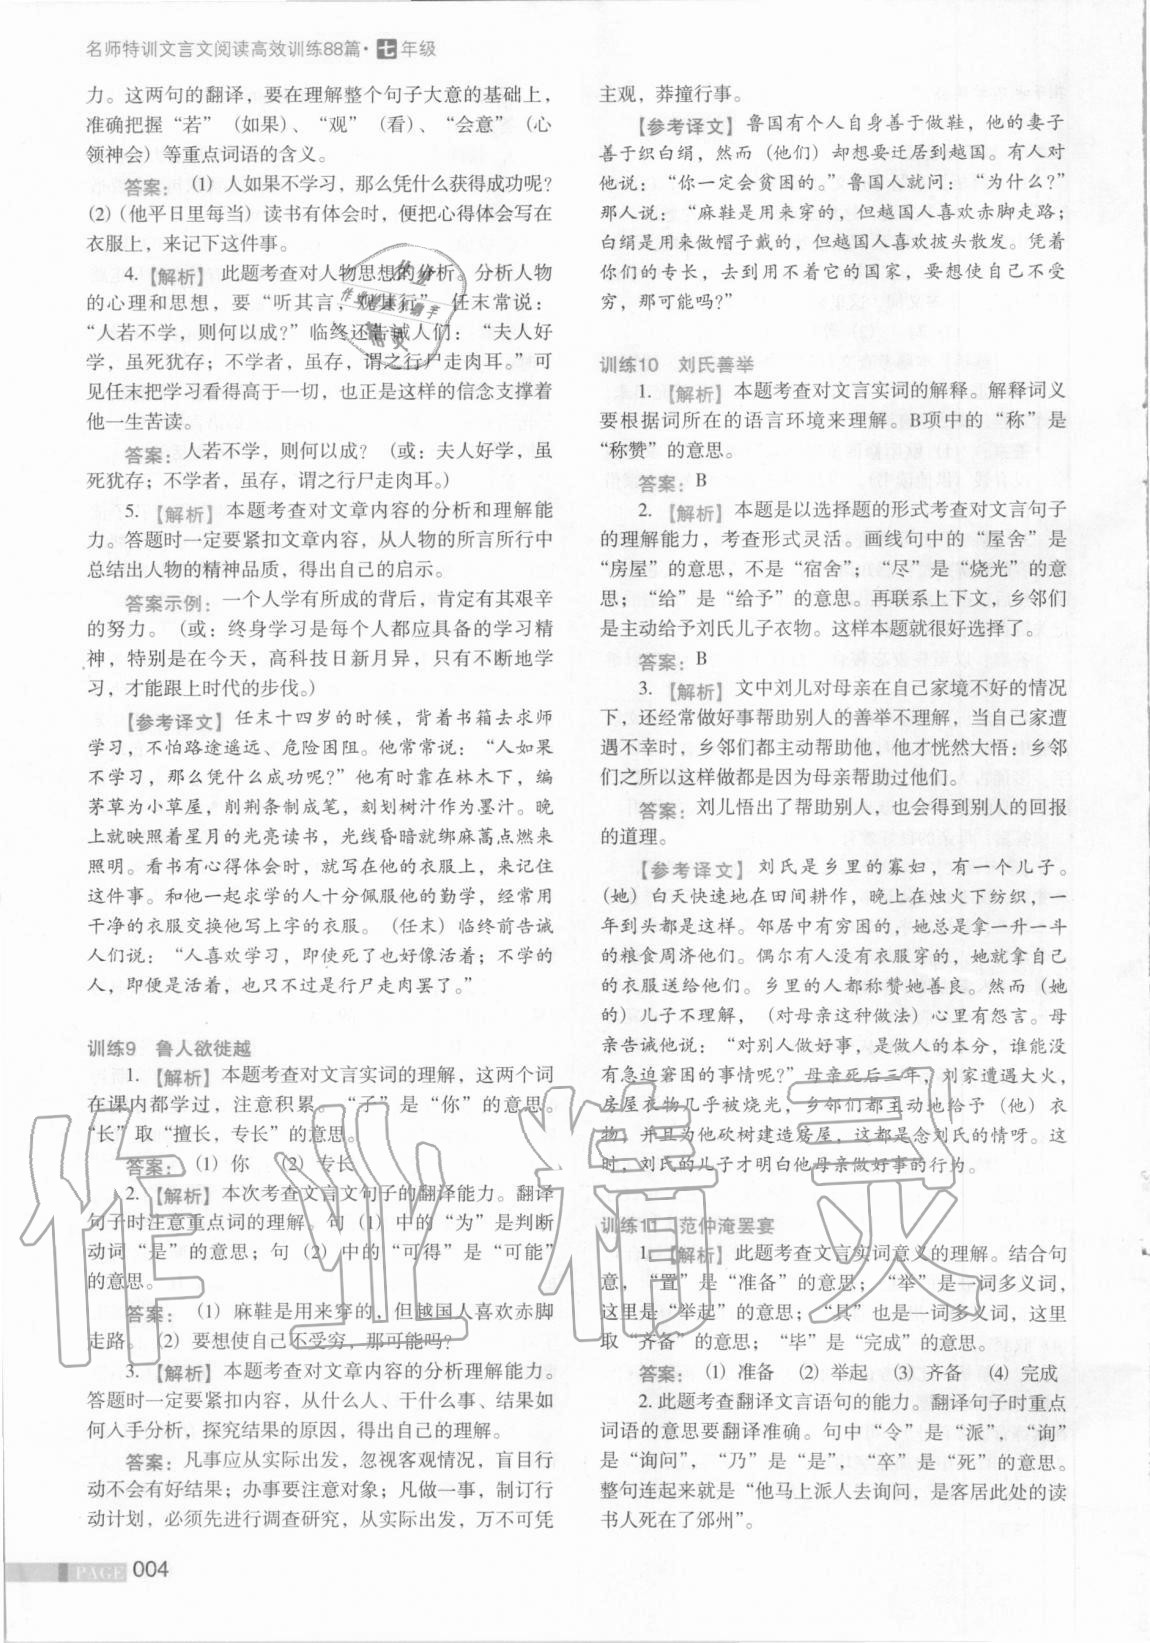 名师特训文言文阅读高效训练88篇·七年级
力。这两句的翻译，要在理解整个句子大意的基础上，
准确把握“若”（如果）、“观”（看）、“会意”（心
领神会）等重点词语的含义。
答案：（1）人如果不学习，那么凭什么获得成功呢？
（2）（他平日里每当）读书有体会时，便把心得体会写在
衣服上，来记下这件事。
4. 【解析】 此题考查对人物思想的分析。分析人物
的心理和思想，要“听其言，观其行”。任末常说：
“人若不学，则何以成？”临终还告诫人们：“夫人好
学，虽死犹存；不学者，虽存，谓之行尸走肉耳。”可
见任末把学习看得高于一切，也正是这样的信念支撑着
他一生苦读。
答案：人若不学，则何以成？（或：夫人好学，虽
死犹存；不学者，虽存，谓之行尸走肉耳。）
5. 【解析】 本题考查对文章内容的分析和理解能
力。答题时一定要紧扣文章内容，从人物的所言所行中
总结出人物的精神品质，得出自己的启示。
答案示例：一个人学有所成的背后，肯定有其艰辛
的努力。（或：终身学习是每个人都应具备的学习精
神，特别是在今天，高科技日新月异，只有不断地学
习，才能跟上时代的步伐。）
【参考译文】 任末十四岁的时候，背着书箱去求师
学习，不怕路途遥远、危险困阻。他常常说：“人如果
不学习，那么凭什么成功呢？”他有时靠在林木下，编
茅草为小草屋，削荆条制成笔，刻划树汁作为墨汁。晚
上就映照着星月的光亮读书，光线昏暗就绑麻蒿点燃来
照明。看书有心得体会时，就写在他的衣服上，来记住
这件事。和他一起求学的人十分佩服他的勤学，经常用
干净的衣服交换他写上字的衣服。（任末）临终前告诫
人们说：“人喜欢学习，即使死了也好像活着；不学的
人，即便是活着，也只不过是行尸走肉罢了。”
训练9 鲁人欲徙越
1. 【解析】 本题考查对文言实词的理解，这两个词
在课内都学过，注意积累。“子”是“你”的意思。
“长”取“擅长，专长”的意思。
答案：（1）你 （2）专长
2. 【解析】 本次考查文言文句子的翻译能力。翻译
句子时注意重点词的理解。句（1）中的“为”是判断
动词“是”的意思；句（2）中的“可得”是“可能”
的意思。
答案：（1）麻鞋是用来穿的，但越国人喜欢赤脚
走路。（2）要想使自己不受穷，那可能吗？
3. 【解析】 本题考查对文章内容的分析理解能力。
答题时一定要紧扣内容，从什么人、干什么事、结果如
何入手分析，探究结果的原因，得出自己的理解。
答案：凡事应从实际出发，忽视客观情况，盲目行
动不会有好结果；办事要注意对象；凡做一事，制订行
动计划，必须先进行调查研究，从实际出发，万不可凭
主观，莽撞行事。
【参考译文】 鲁国有个人自身善于做鞋，他的妻子
善于织白绢，然而（他们）却想要迁居到越国。有人对
他说：“你一定会贫困的。”鲁国人就问：“为什么？”
那人说：“麻鞋是用来穿的，但越国人喜欢赤脚走路；
白绢是用来做帽子戴的，但越国人喜欢披头散发。凭着
你们的专长，去到用不着它的国家，要想使自己不受
穷，那可能吗？”
训练10 刘氏善举
1. 【解析】 本题考查对文言实词的解释。解释词义
要根据词所在的语言环境来理解。B项中的“称”是
“称赞”的意思。
答案：B
2. 【解析】 本题是以选择题的形式考查对文言句子
的理解能力，考查形式灵活。画线句中的“屋舍”是
“房屋”的意思，不是“宿舍”；“尽”是“烧光”的意
思；“给”是“给予”的意思。再联系上下文，乡邻们
是主动给予刘氏儿子衣物。这样本题就很好选择了。
答案：B
3. 【解析】 文中刘儿对母亲在自己家境不好的情况
下，还经常做好事帮助别人的善举不理解，当自己家遭
遇不幸时，乡邻们都主动帮助他，他才恍然大悟：乡邻
们之所以这样做都是因为母亲帮助过他们。
答案：刘儿悟出了帮助别人，也会得到别人的回报
的道理。
【参考译文】 刘氏是乡里的寡妇，有一个儿子。
（她）白天快速地在田间耕作，晚上在烛火下纺织，一
年到头都是这样。邻居中有穷困的，她总是拿一升一斗
的粮食周济他们。偶尔有人没有衣服穿的，她就拿自己
的衣服送给他们。乡里的人都称赞她善良。然而（她
的）儿子不理解，（对母亲这种做法）心里有怨言。母
亲告诫他说：“对别人做好事，是做人的本分，谁能没
有急迫窘困的事情呢？”母亲死后三年，刘家遭遇大火，
房屋衣物几乎被烧光，乡邻们都主动地给予（他）衣
物，并且为他砍树建造房屋，这都是念刘氏的情呀。这
时，刘氏的儿子才明白他母亲做好事的行为。
训练11 范仲淹罢宴
1. 【解析】 此题考查文言实词意义的理解。结合句
意，“置”是“准备”的意思；“举”是一词多义词，
这里是“举起”的意思；“具”也是一词多义词，这里
取“齐备”的意思；“毕”是“完成”的意思。
答案：（1）准备 （2）举起 （3）齐备 （4）完成
2. 此题考查翻译文言语句的能力。翻译句子时重点
词语的意思要翻译准确。句中“令”是“派”，“询”
是“询问”，“乃”是“是”，“卒”是“死”的意思。
整句连起来就是“他马上派人去询问，是客居此处的读
书人死在了邠州”。
PAGE 004
作业精灵